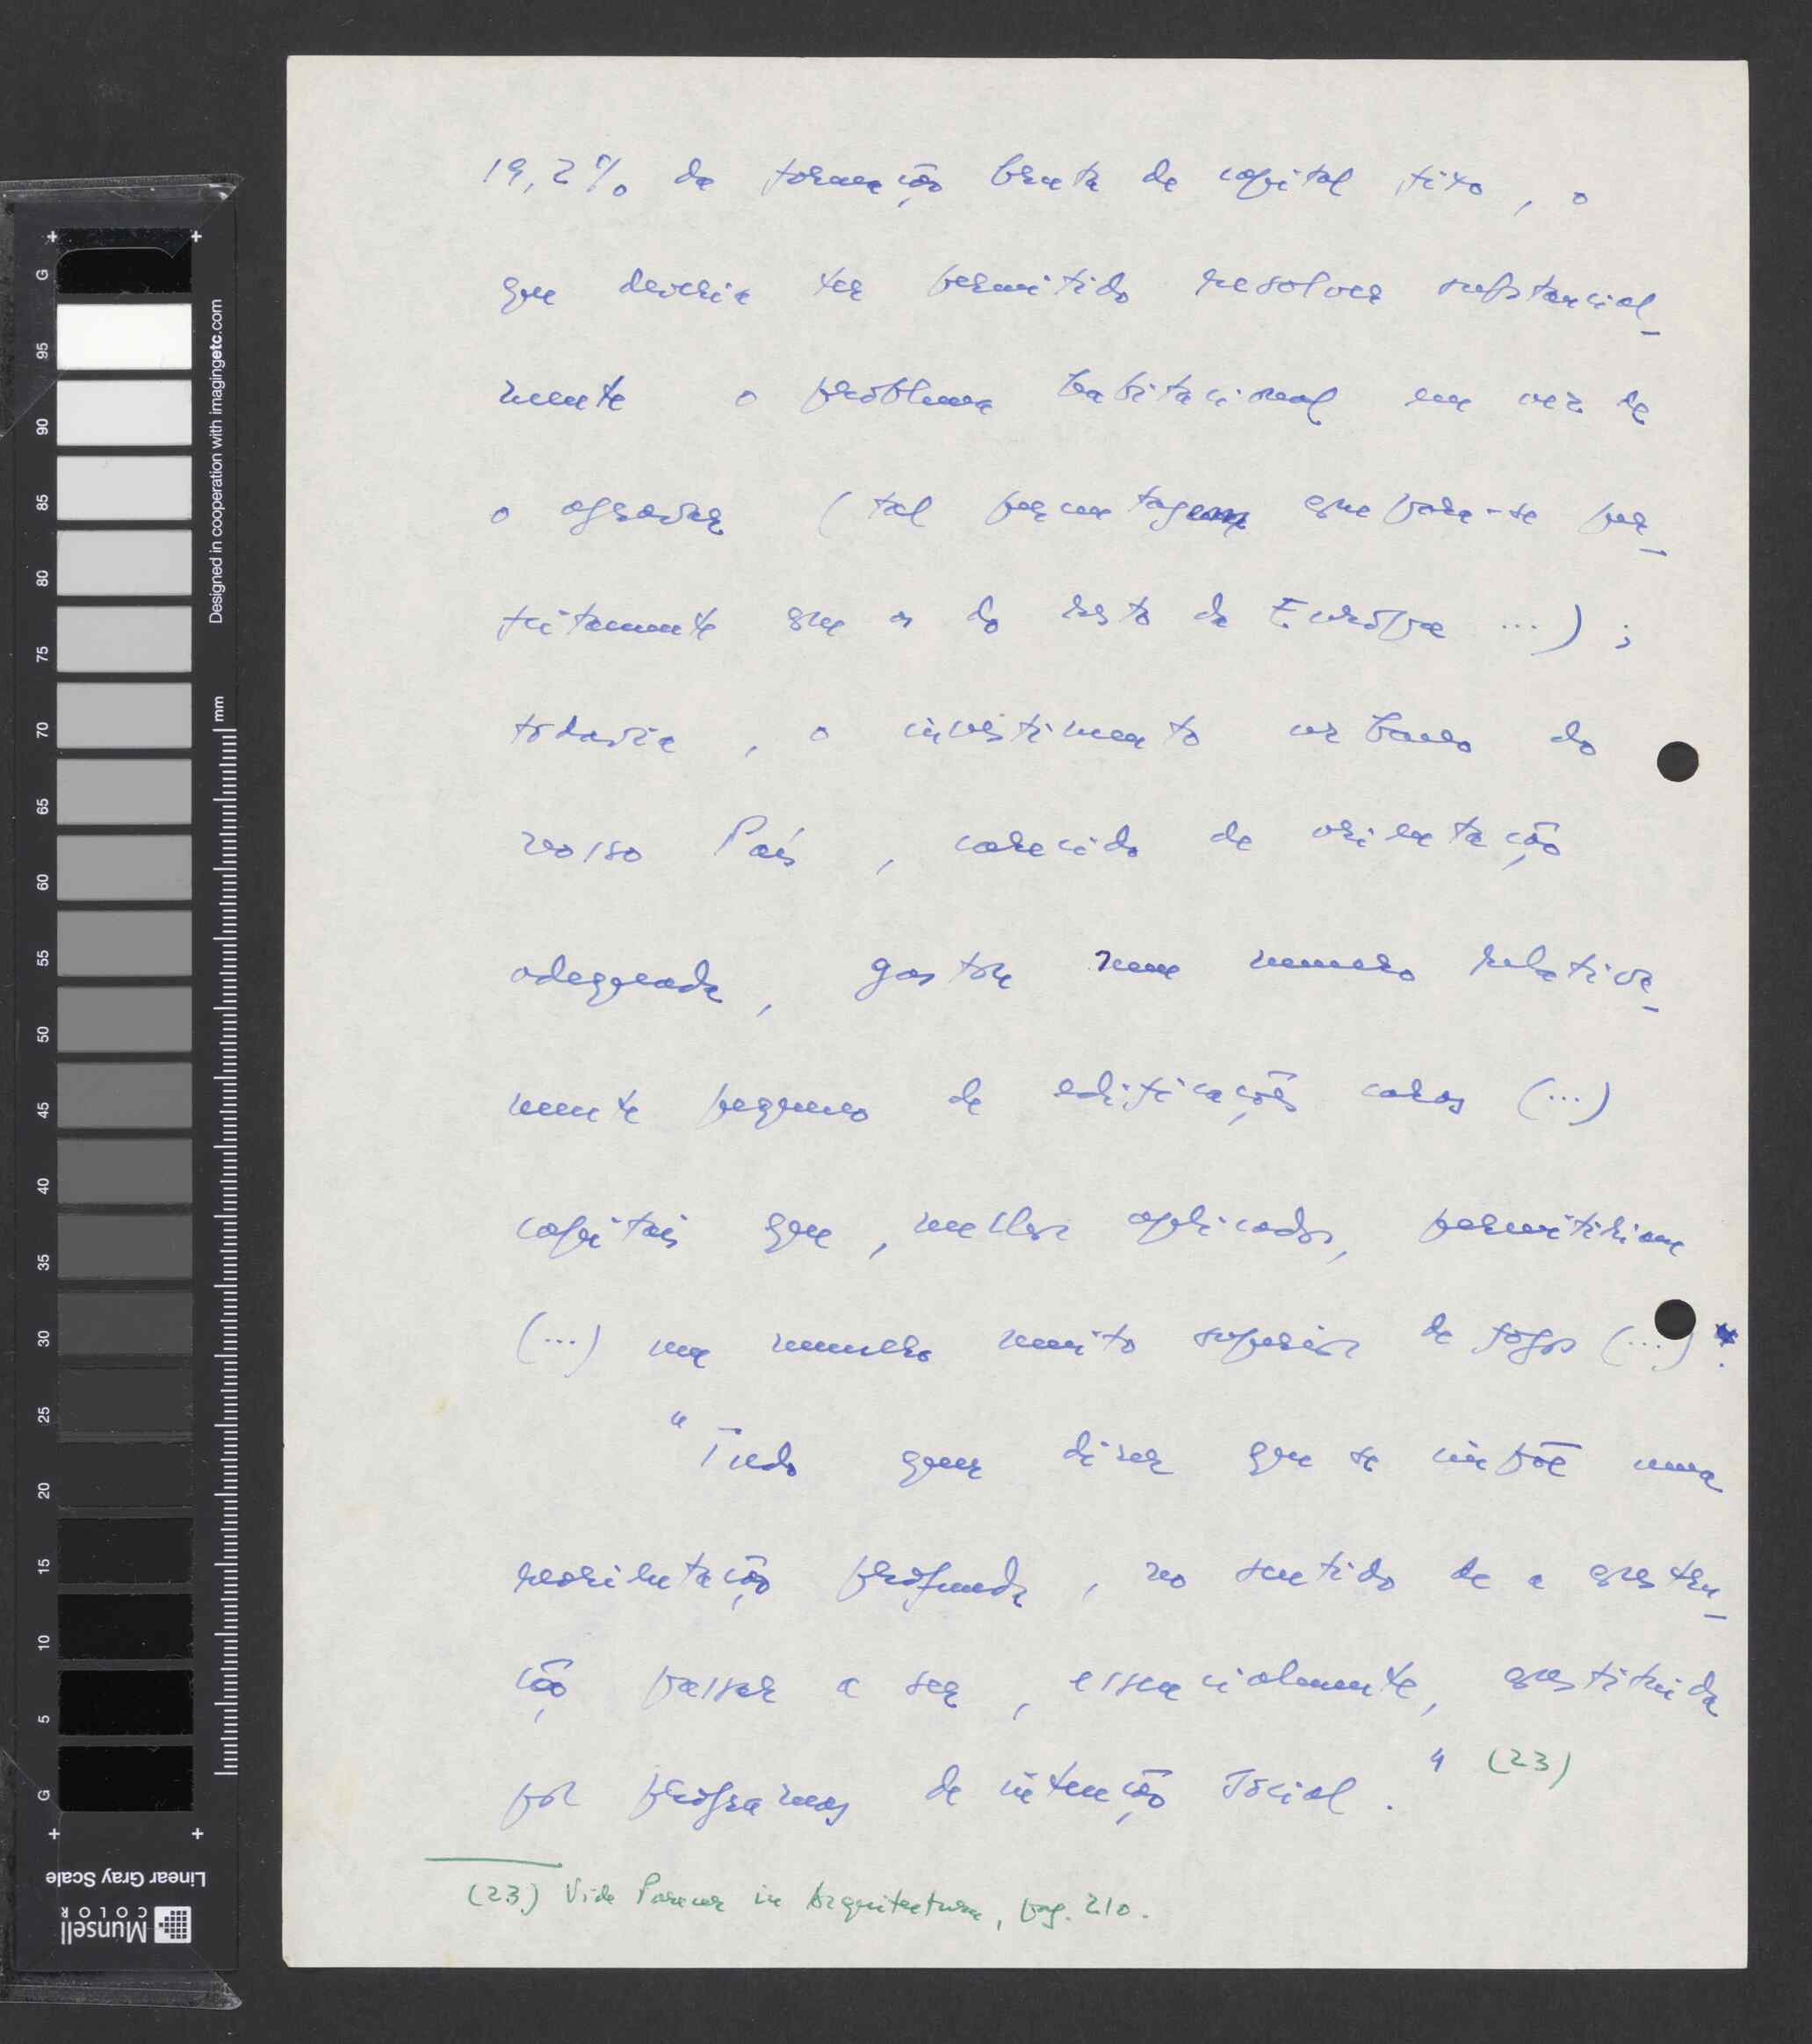 19,2% da formação bruta de capital fixo, o
que deveria ter permitido resolver substancial_
mente o problema habitacional em vez de
o agravar (tal percentagem equipara-se per_
feitamente que a do resto da Europa ...);
todavia, o investimento urbano do
nosso País, carecido de orientação
adequada, gastou num numero relativa_
mente pequeno de edificações caras (...)
capitais que, melhor aplicados, permitiriam
(...) um numero muito superior de fogos (...).
"Tudo quer dizer que se impõe uma
reorientação profunda, no sentido de a
ção passar a ser, essencialmente, constituida
por programas de intenção social." (23)
(23) Vide Parecer in Arquitectura, pag. 210.
G 95 90 85 80 75 70 65 60 55 50 45 40 35 30 25 20 15 10 5 G
mm
Designed in cooperation with imagingetc.com
Linear Gray Scale
Munsell
COLOR